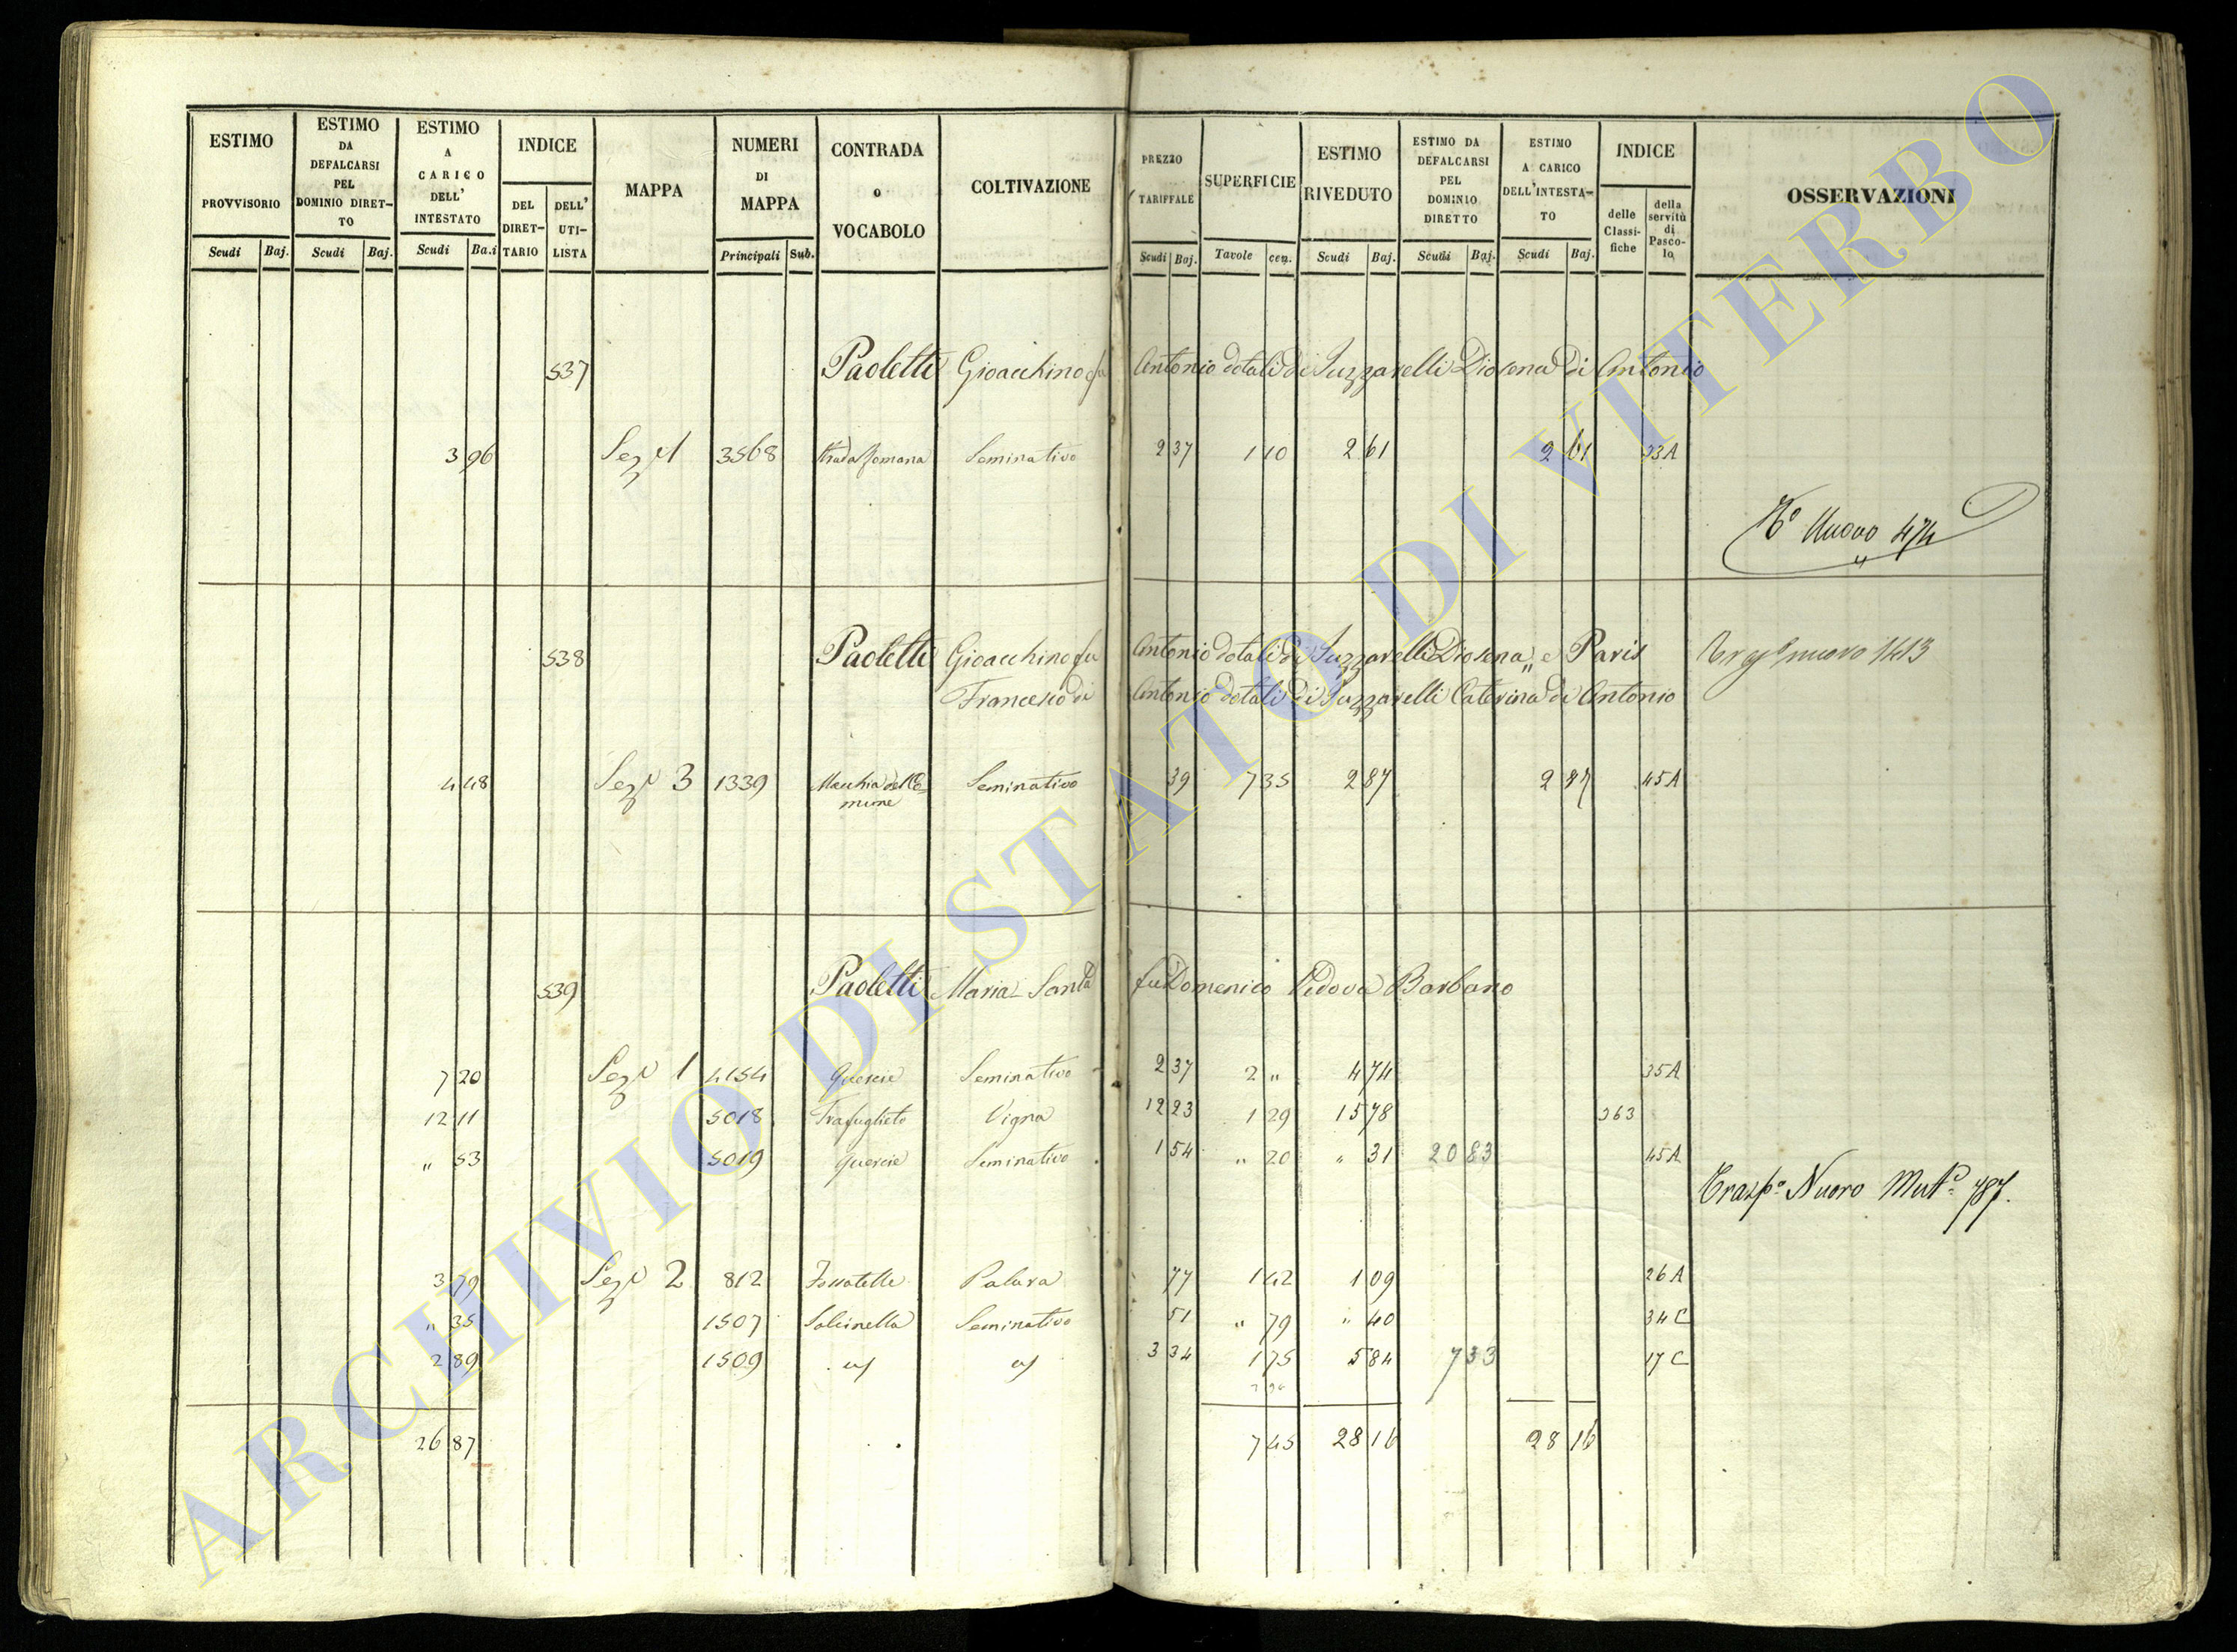 ESTIMO PROVVISORIO Scudi Baj.
ESTIMO DA DEFALCARSI PEL DOMINIO DIRET-TO Scudi Baj.
ESTIMO A CARICO DELL' INTESTATO Scudi Ba.i
INDICE DEL DIRET-TARIO DELL' UTI-LISTA
MAPPA
NUMERI DI MAPPA Principali Sub.
CONTRADA o VOCABOLO
COLTIVAZIONE
PREZZO TARIFFALE Scudi Baj.
SUPERFICIE Tavole cen.
ESTIMO RIVEDUTO Scudi Baj.
ESTIMO DA DEFALCARSI PEL DOMINIO DIRETTO Scudi Baj.
ESTIMO A CARICO DELL'INTESTA-TO Scudi Baj.
INDICE delle Classi-fiche della servitù di Pasco-lo
OSSERVAZIONI
537 Paoletti Gioacchino fu Antonio dotali di Diosena di Antonio
3 96 Sez.e 1 3568 Strada Romana Seminativo 2 37 1 10 2 61 2 61 33A
Nuovo 474
538 Paoletti Gioacchino fu Antonio dotali di Diosena „ e Paris nuovo 1413
Francesco di Antonio dotali di Caterina di Antonio
4 48 Sez.e 3 1339 Macchia del Co=mune Seminativo 39 7 35 2 87 2 87 45A
539 Paoletti Maria Santa fu Domenico Vedova Barbano
7 20 Sez.e 1 4154 Quercie Seminativo 2 37 2 „ 4 74 35A
12 11 5018 Trafuglieto Vigna 12 23 1 29 15 78 363
„ 53 5019 Quercie Seminativo 1 54 „ 20 „ 31 20 83 45A
Trasp.o Nuovo Mut.o 787.
3 79 Sez.e 2 812 Fossatelle Palara 77 1 42 1 09 26A
„ 35 1507 Salcinella Seminativo 51 „ 79 „ 40 34C
2 89 1509 3 34 1 75 5 84 7 33 17C
26 87 7 45 28 16 28 16
ARCHIVIO DI STATO DI VITERBO